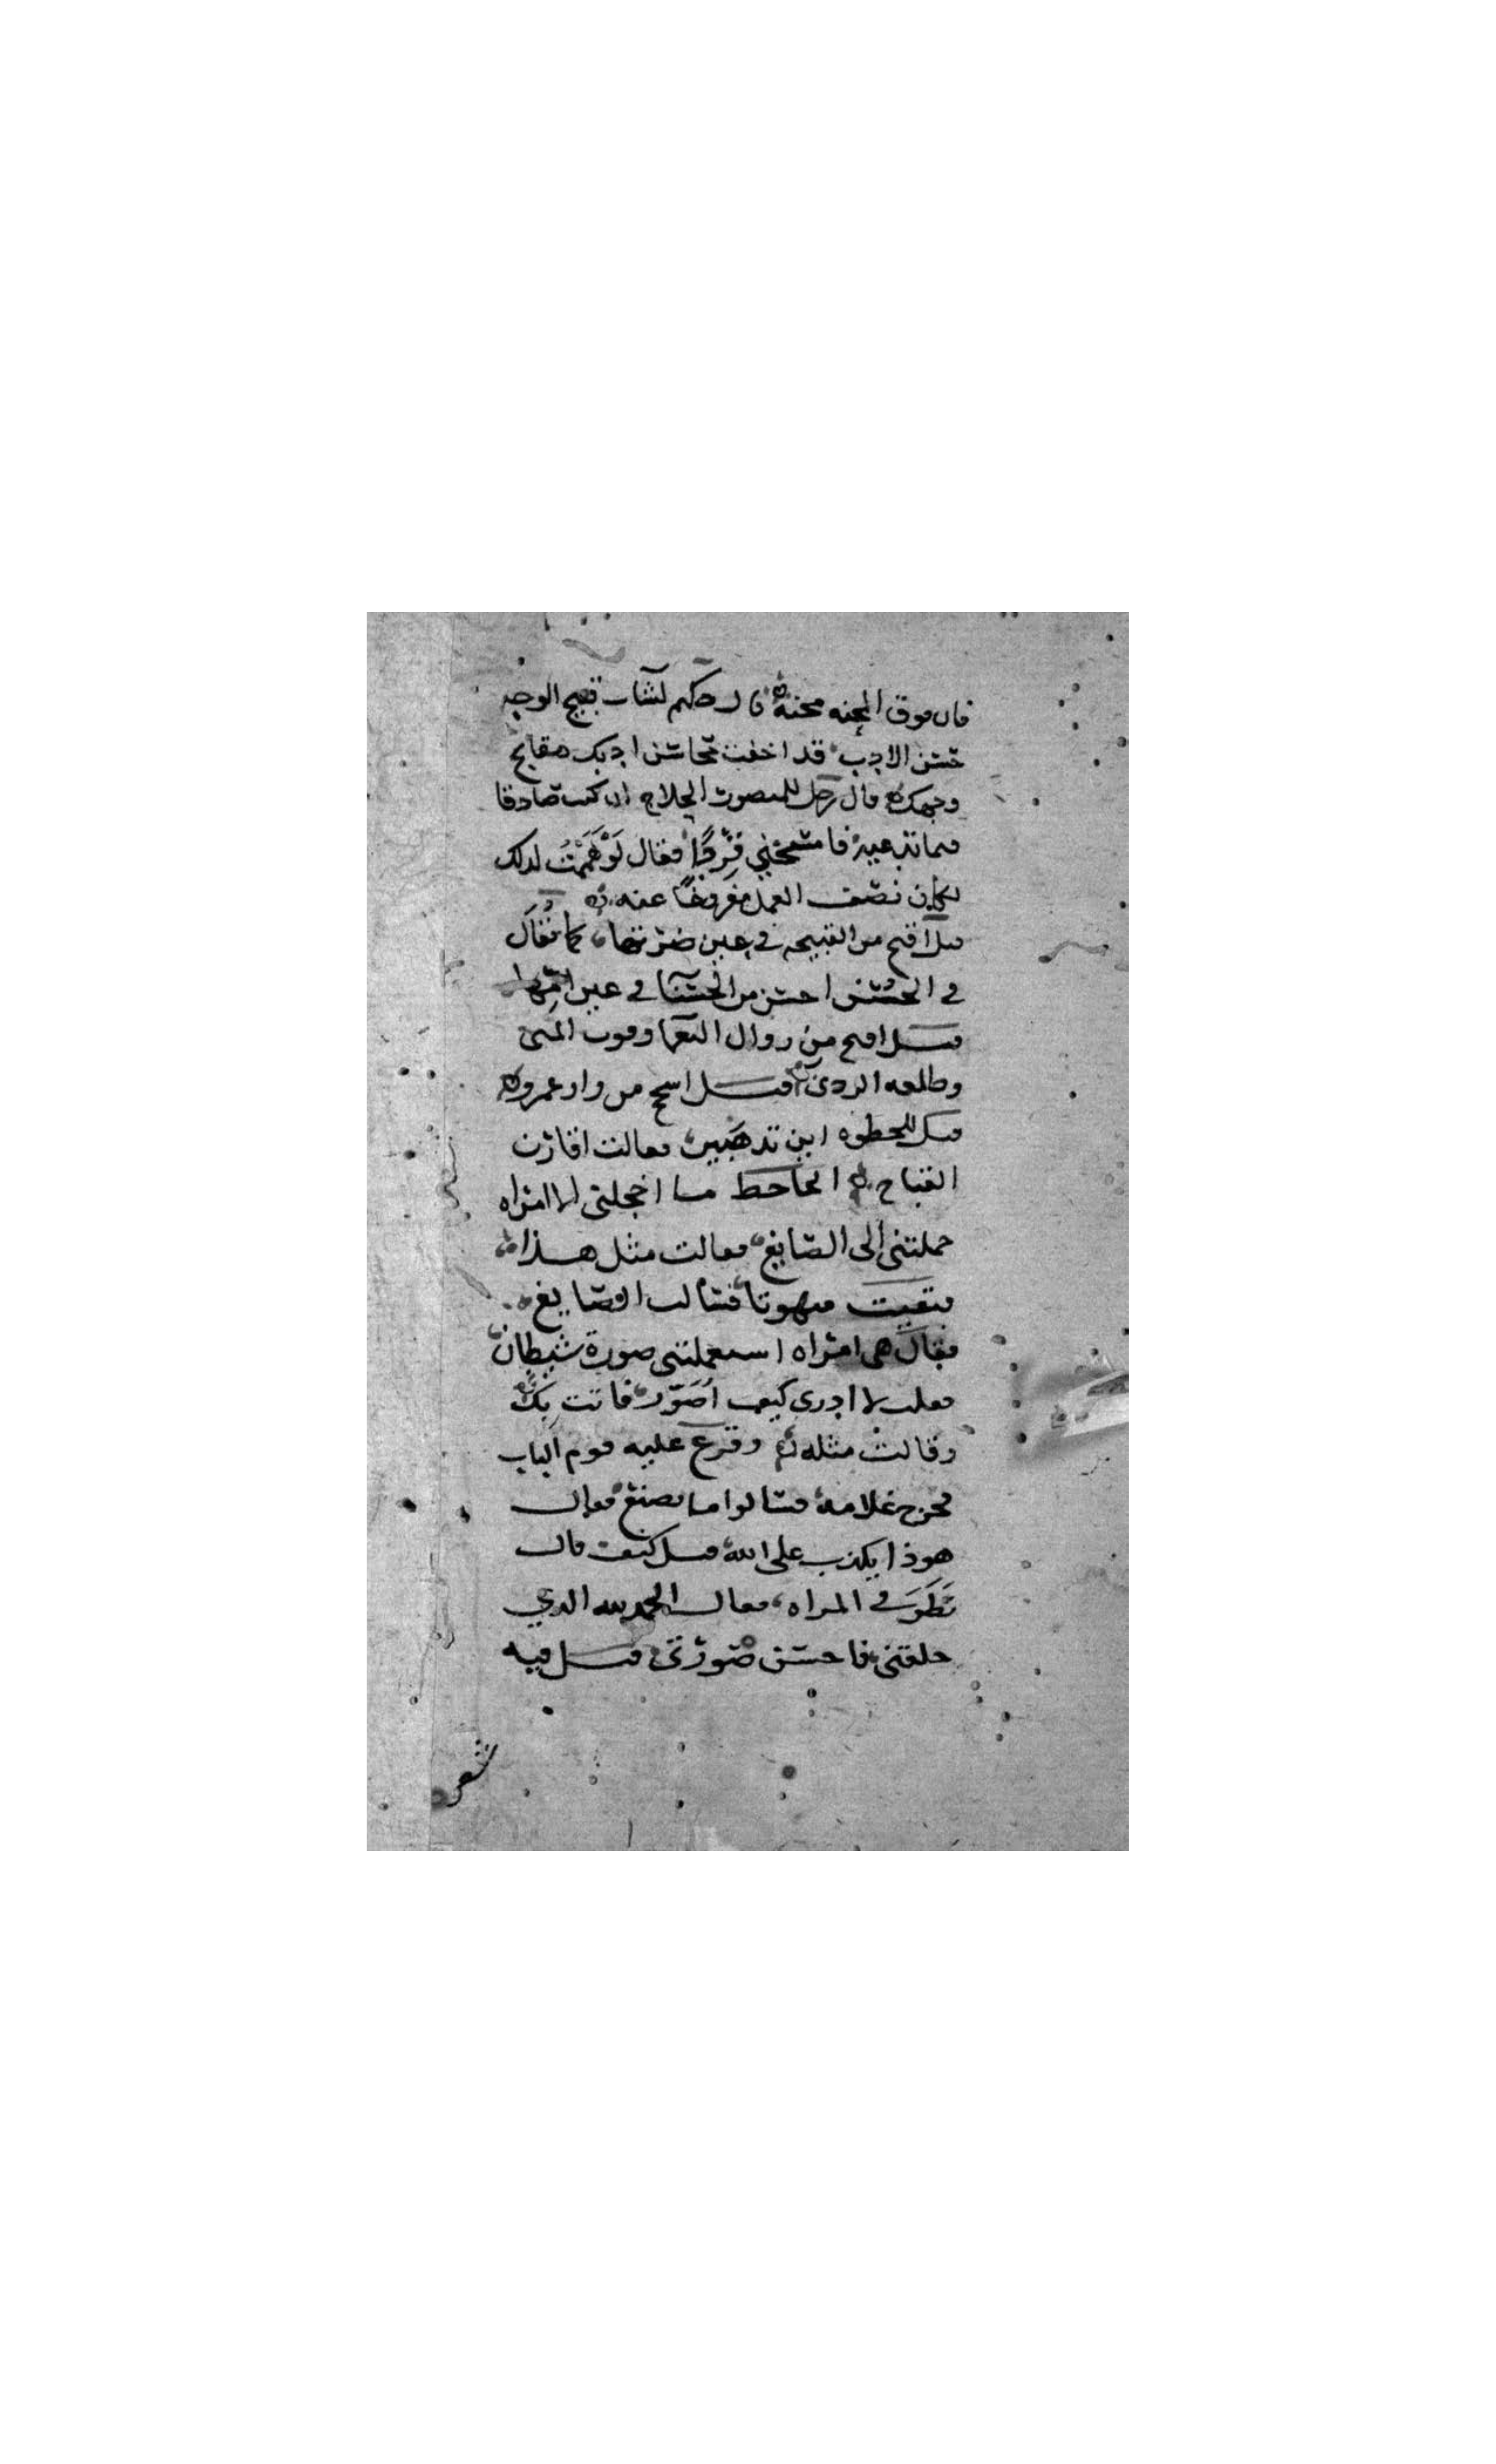 فان فوق المحنه محنة قال حكيم لشاب قبيح الوجه
حسن الادب قد اخفت محاسن ادبك مقابح
وجهك قال رجل للمنصور الحلاج ان كنت صادقا
فيما تدعيه فامسخني قردًا فقال لو هممت لذلك
لكان نصف العمل مفروغًا عنه
قيل اقبح من القبيحه في عين ضرتها كما يقال
في الحسن احسن من الحسنآ في عين امها
قيل اقبح من زوال النعما وفوت المنى
وطلعه الردى قيل اسمج من واو عمرو
قيل للخطوه اين تذهبين فقالت اقارن
القباح الجاحظ ما اخجلتني الا امراه
حملتني الى الصايغ فقالت مثل هذا
فبقيت مبهوتا فسالت الصايغ
فقال هي امراه استعملتني صورة شيطان
فقلت لا ادري كيف اصور فاتت بك
وقالت مثله وقرع عليه قوم الباب
فخرج غلامه فسالوا ما يصنع فقال
هوذا يكذب على الله قيل كيف قال
نظر في المراه فقال الحمد لله الذي
خلقني فاحسن صورتي قيل فيه
شعر